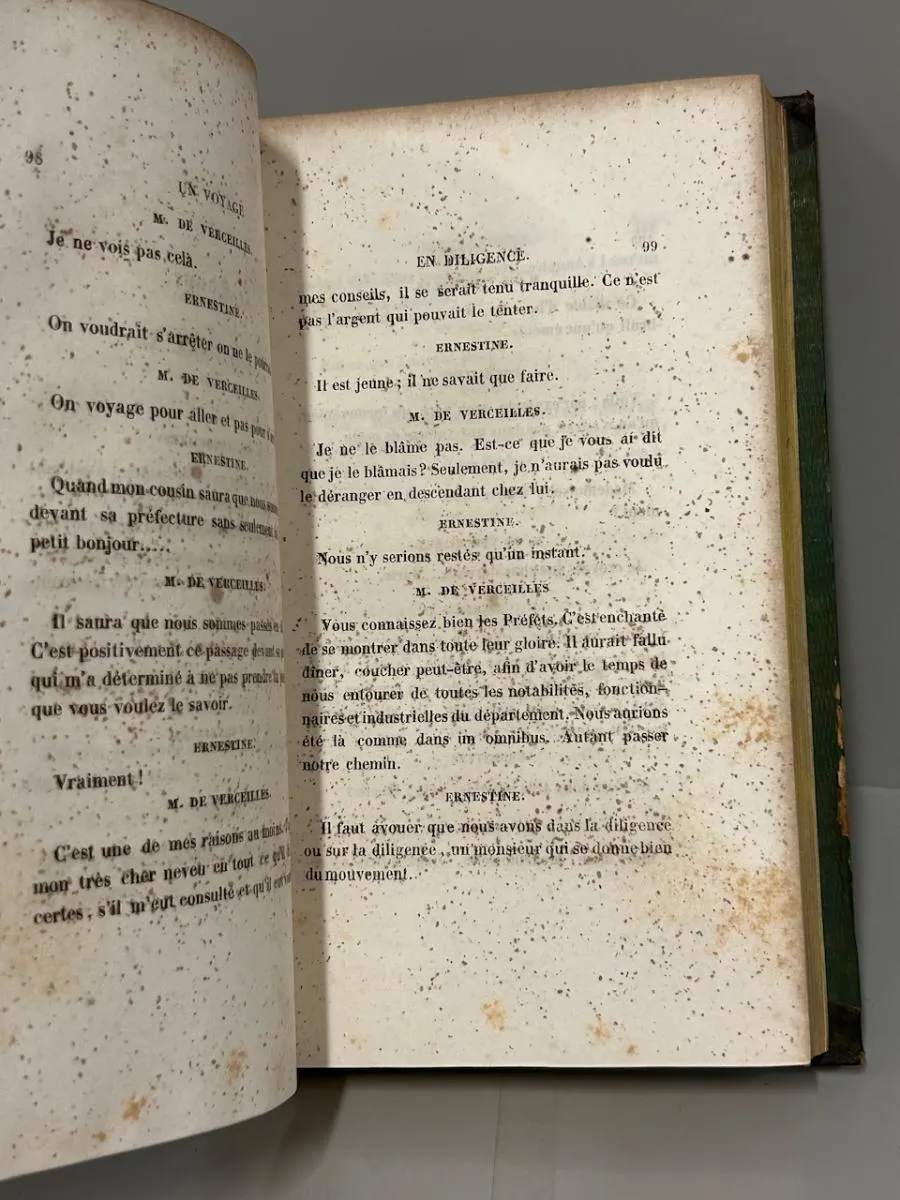 98
UN VOYAGE
M. DE VERCEILLES.
Je ne vois pas celà.
ERNESTINE.
On voudrait s'arrêter on ne le
M. DE VERCEILLES.
On voyage pour aller et pas pour
ERNESTINE.
Quand mon cousin saura que nous
devant sa préfecture sans seulement
petit bonjour.....
M. DE VERCEILLES.
Il saura que nous sommes passés
C'est positivement ce passage devant
qui m'a déterminé à ne pas prendre la
que vous voulez le savoir.
ERNESTINE.
Vraiment!
M. DE VERCEILLES.
C'est une de mes raisons au moins.
mon très cher neveu en tout ce qu'il
certes, s'il m'eut consulté et qu'il
EN DILIGENCE.
99
mes conseils, il se serait tenu tranquille. Ce n'est
pas l'argent qui pouvait le tenter.
ERNESTINE.
Il est jeune; il ne savait que faire.
M. DE VERCEILLES.
Je ne le blâme pas. Est-ce que je vous ai dit
que je le blâmais? Seulement, je n'aurais pas voulu
le déranger en descendant chez lui.
ERNESTINE.
Nous n'y serions restés qu'un instant.
M. DE VERCEILLES
Vous connaissez bien les Préfets. C'est enchanté
de se montrer dans toute leur gloire. Il aurait fallu
dîner, coucher peut-être, afin d'avoir le temps de
nous entourer de toutes les notabilités, fonction-
naires et industrielles du département. Nous aurions
été là comme dans un omnibus. Autant passer
notre chemin.
ERNESTINE.
Il faut avouer que nous avons dans la diligence
ou sur la diligence, un monsieur qui se donne bien
du mouvement.